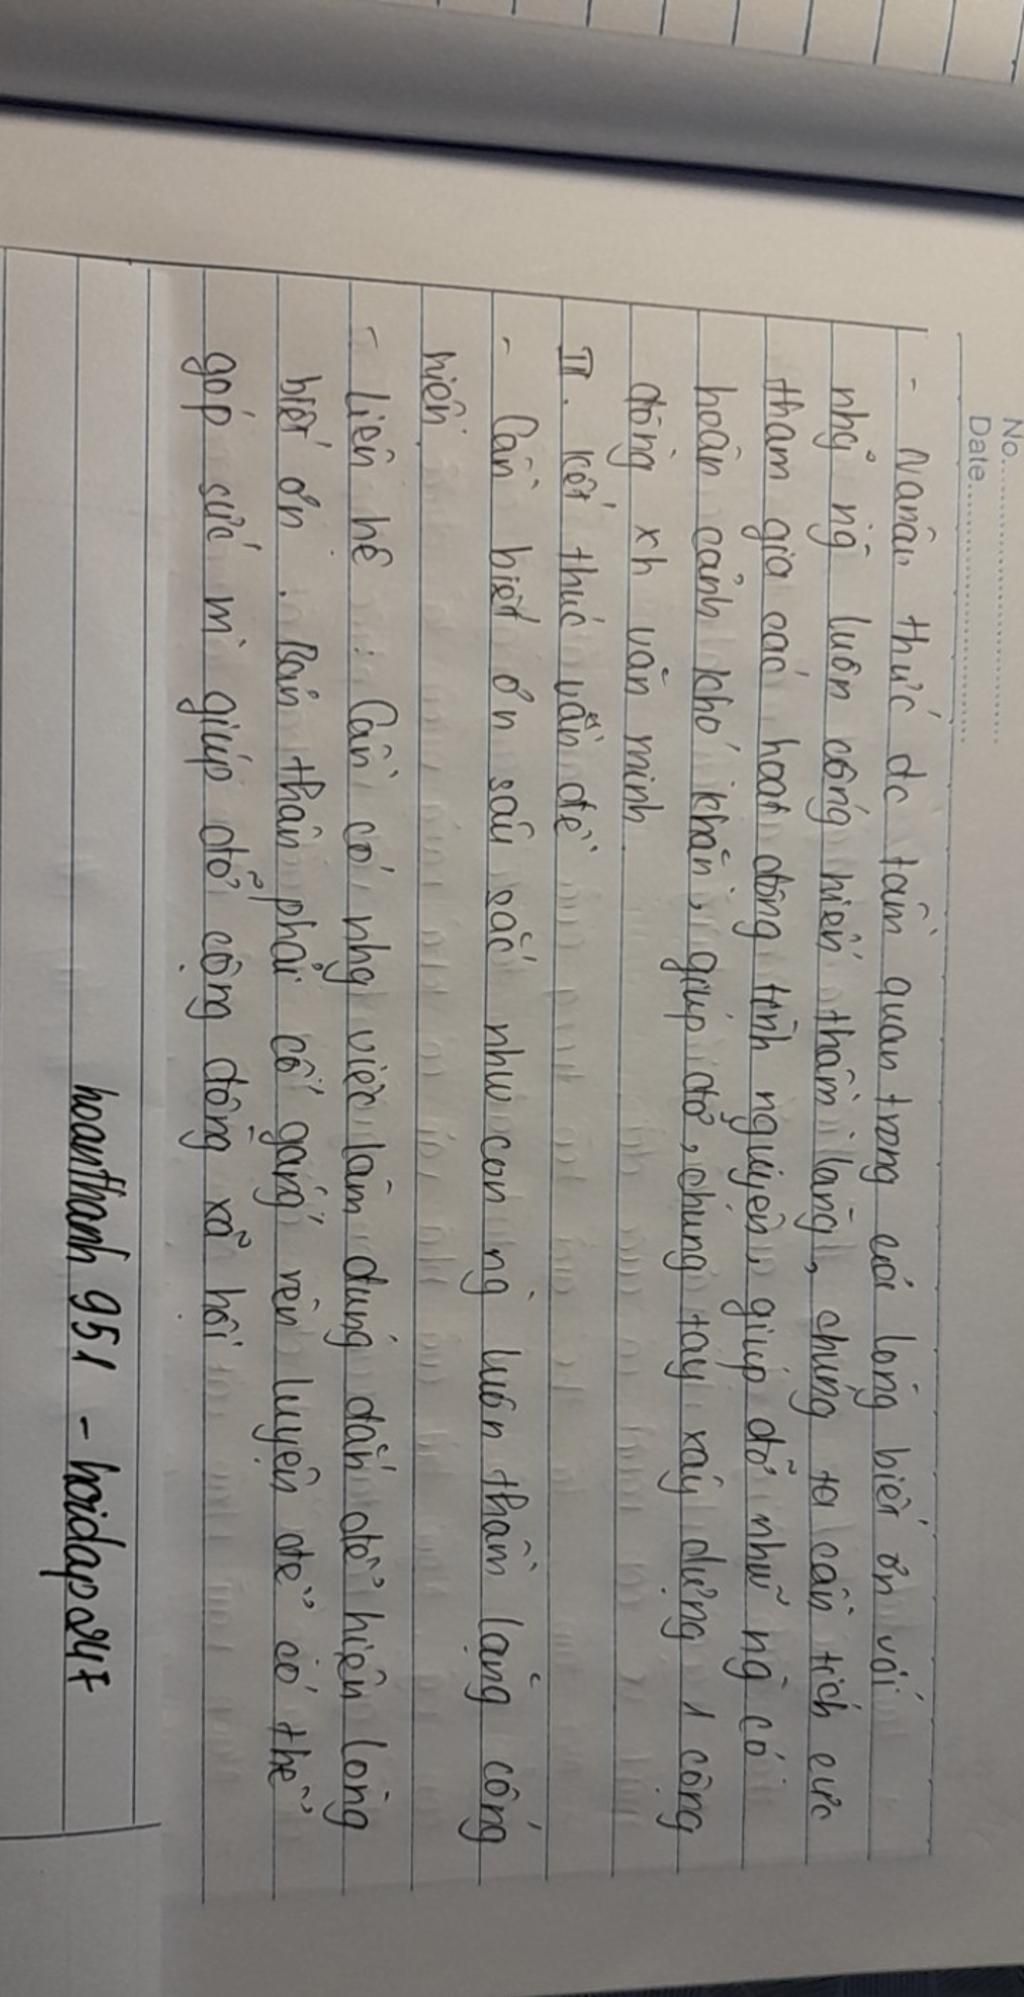 No.
Date
- Nhận thức đc tầm quan trọng của lòng biết ơn với
nhg ng luôn cống hiến thầm lặng, chúng ta cần tích cực
tham gia các hoạt động tình nguyện, giúp đỡ nhữ ng có
hoàn cảnh khó khăn, giúp đỡ, chung tay xây dựng 1 cộng
đồng xh văn minh
III. Kết thúc vấn đề
- Cần biết ơn sâu sắc như con ng luôn thầm lặng cống
hiến
- Liên hệ : Cần có nhg việc làm đúng đắn để hiện lòng
biết ơn. Bản thân phải cố gắng rèn luyện để có thể
góp sức mì giúp đỡ cộng đồng xã hội
hoanthanh951 - hoidap247